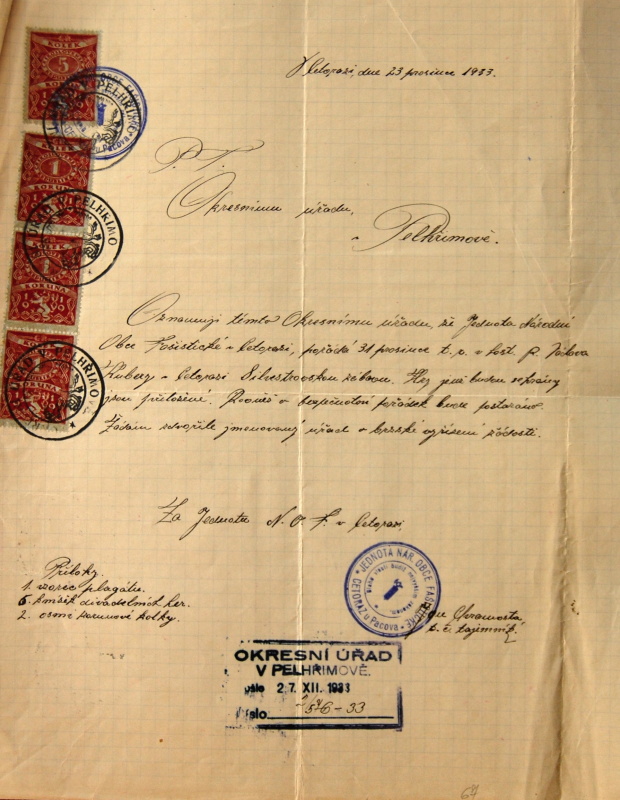 V Cetorazi, dne 23 prosince 1933.
P. T.
Okresnímu úřadu,
v Pelhřimově.
Oznamuji tímto Okresnímu úřadu, že Jednota Národní
Obce Fašistické v Cetorazi, pořádá 31 prosince t. r. v host. p. Václava
v Cetorazi Silvestrovskou zábavu. Hry jimž budou sehrány
jsou přiloženy. Rovněž o bezpečnostní pořádek bude postaráno.
Žádám zdvořile jmenovaný úřad o brzské vyřízení žádosti.
Za Jednotu N. O. F. v Cetorazi,
Přílohy.
1. vzorec plagátu.
6. knížek divadelních her.
2. osmi korunové kolky.
t. č. tajemník.
JEDNOTA NÁR. OBCE FAŠISTICKÉ
CETORAZ u Pacova
OKRESNÍ ÚŘAD
V PELHŘIMOVĚ.
Došlo 27. XII. 1933
Číslo 576-33
KOLEK
5
KOLEK
1
KORUNA
KOLEK
1
KORUNA
1
KORUNA
ÚŘAD V PELHŘIMO
67